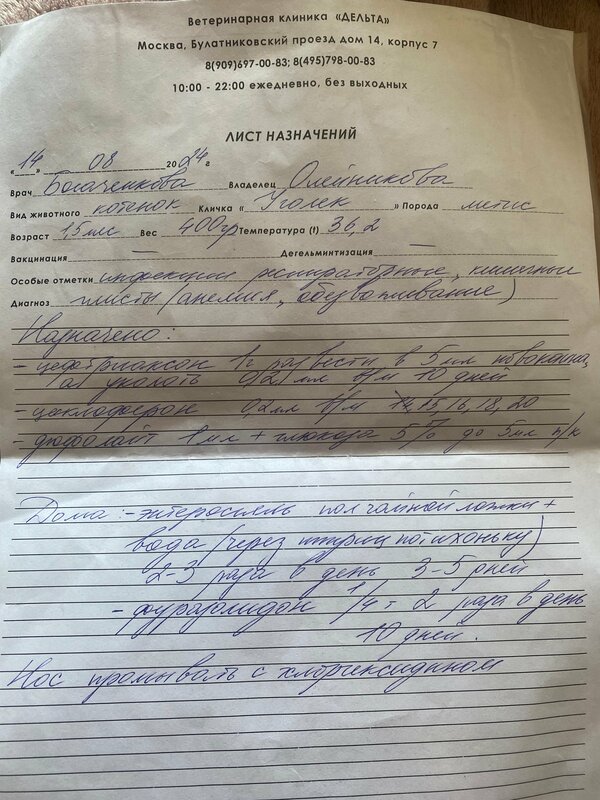 Ветеринарная клиника «ДЕЛЬТА»
Москва, Булатниковский проезд дом 14, корпус 7
8(909)697-00-83; 8(495)798-00-83
10:00 - 22:00 ежедневно, без выходных
ЛИСТ НАЗНАЧЕНИЙ
«14» 08 2024 г
Врач Богаченкова Владелец Олейникова
Вид животного котенок Кличка « Уголек » Порода метис
Возраст 1,5 мес Вес 400гр Температура (t) 36,2
Вакцинация — Дегельминтизация —
Особые отметки инфекции респираторные, кишечные
Диагноз глисты (анемия, обезвоживание)
Назначено:
- цефтриаксон 1г развести в 5мл новокаина,
а уколоть 0,2 мл в/м 10 дней
- циклоферон 0,2мл в/м 14, 15, 16, 18, 20
- дюфалайт 1 мл + глюкоза 5% до 5мл п/к
Дома: - энтеросгель пол чайной ложки +
вода (через шприц потихоньку)
2-3 раза в день 3-5 дней
- фуразолидон 1/4 т 2 раза в день
10 дней.
Нос промывать с хлоргексидином